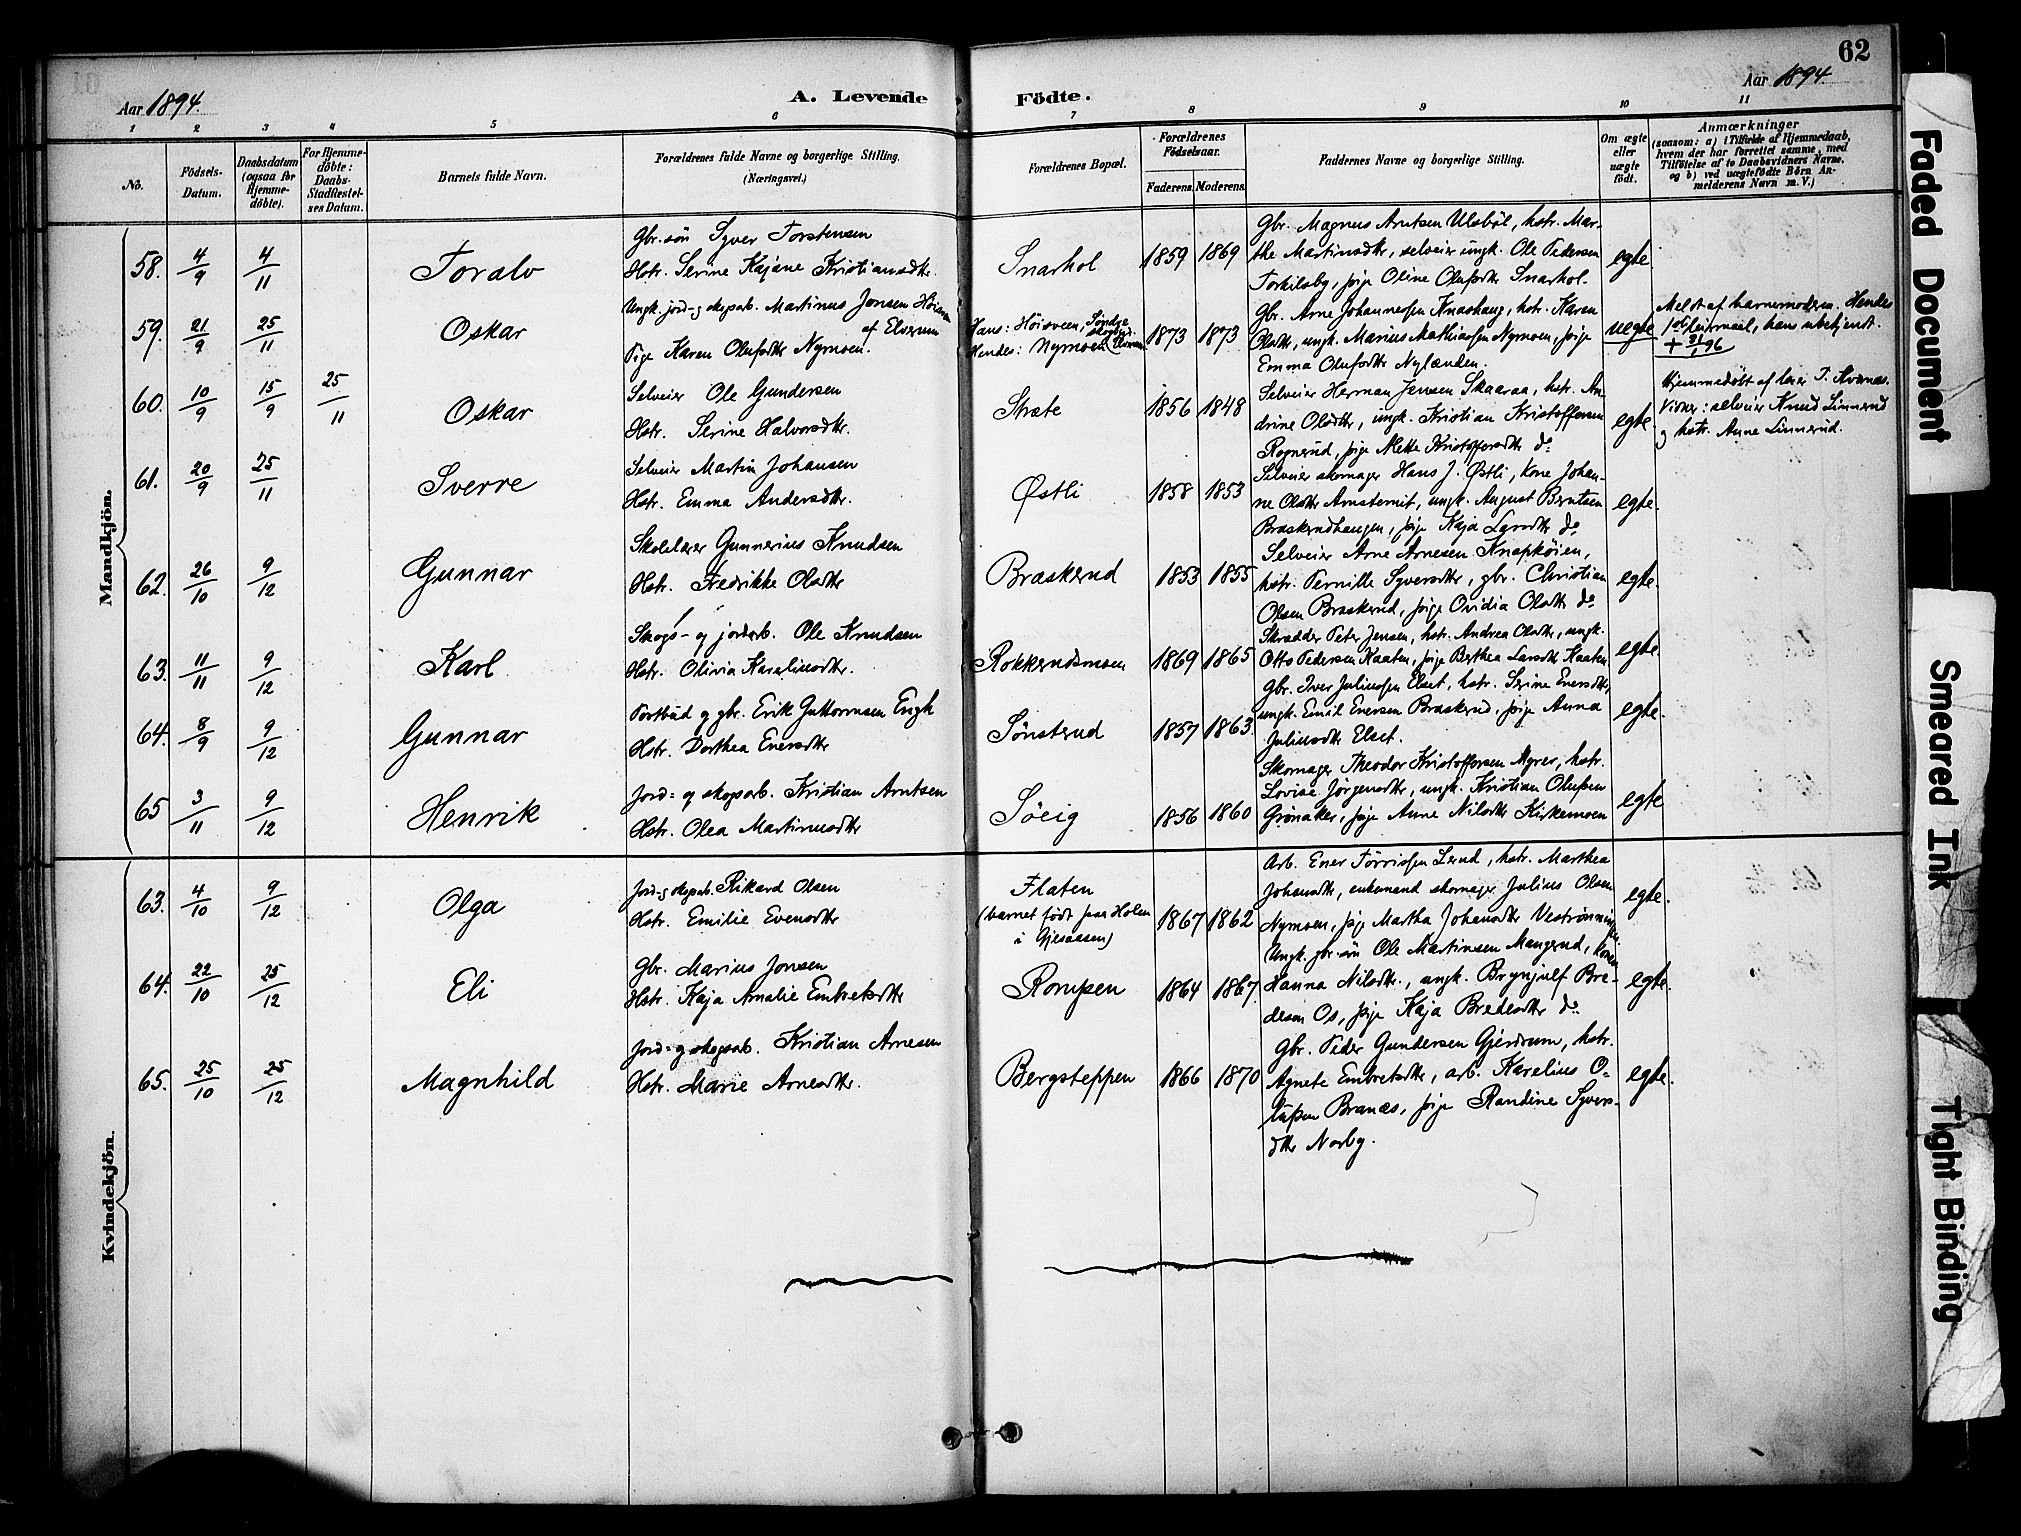 62
Aar 1894.
A. Levende
Födte.
Aar 1894.
1 2 3 4 5 6 7 8 9 10 11
No.
Födsels-Datum.
Daabsdatum (ogsaa for Hjemme-döbte).
For Hjemme-döbte: Daabs-Stadfæstelses Datum.
Barnets fulde Navn.
Forældrenes fulde Navne og borgerlige Stilling.
(Næringsvei.)
Forældrenes Bopæl.
Forældrenes Födselsaar.
Faderens. Moderens.
Faddernes Navne og borgerlige Stilling.
Om ægte eller uægte födt.
Anmærkninger
(saasom: a) i Tilfælde af Hjemmedaab, hvem der har forrettet samme, med Tilföielse af to Daabsvidners Navne, og b) ved uægtefödte Börn Anmelderens Navn m. V.)
Mandkjön.
58. 4/9 4/11 Toralv
Gbr. sön Syver Torstensen
Hstr. Serine Kajane Kristiansdtr.
Snarhol 1859 1869
Gbr. Magnus Arntsen Ulsböl, hstr. Mar-
the Martinusdtr, selveier ungk. Ole Pedersen
Torkilsby, pige Oline Olufsdtr Snarhol.
egte.
59. 21/9 25/11 Oskar
Ungk. jord- og skogsarb. Martinus Jonsen Höisveen
af Elverum
Pige Karen Olufsdtr Nymoen.
Hans: Höisveen, Söndre
Hendes: Nymoen
1873 1873
Gbr. Arne Johannessen Knashaug, hstr. Karen
Olsdtr, ungk. Marius Mathiassen Nymoen, pige
Emma Olufsdtr Nylænden.
uegte
Meldt af barnemoderen. Hendes
1ste leiermaal, hans ubekjendt.
+ 31/1 96
60. 10/9 15/9 25/11 Oskar
Selveier Ole Gundersen
Hstr. Serine Halvorsdtr.
Stræte 1856 1848
Selveier Herman Jensen Skaaraa, hstr. An-
drine Olsdtr, ungk. Kristian Kristoffersen
Rognerud, pige Mette Kristoffersdtr do.
egte
Hjemmedöbt af lærer T. Kværnæs.
Vidner: selveier Knud Linnerud
og hstr. Anne Linnerud.
61. 20/9 25/11 Sverre
Selveier Martin Johansen
Hstr. Emma Andersdtr.
Østli 1858 1853
Selveier skomager Hans J. Østli, kone Johan-
ne Olsdtr Arnstemit, ungk. August Berntsen
Braskerudhaugen, pige Kaja Larsdtr do
egte.
62. 26/10 9/12 Gunnar
Skolelærer Gunnerius Knudsen
Hstr. Fredrikke Olsdtr
Braskerud 1853 1855
Selveier Arne Arnesen Knapköien,
hstr. Pernille Syversdtr, gbr. Christian
Olsen Braskerud, pige Ovidia Olsdtr do.
egte.
63. 11/11 9/12 Karl
Skogs- og jordarb. Ole Knudsen
Hstr. Olivia Karelinsdtr.
Rokkerudsmoen 1869 1865
Skrædder Peter Jensen, hstr. Andrea Olsdtr, ungk.
Otto Pedersen Kaaten, pige Berthea Larsdtr Kaaten
egte.
64. 8/9 9/12 Gunnar
Portbud og gbr. Erik Guttormsen Engh
Hstr. Dorthea Enersdtr
Sönsterud 1857 1863.
Gbr. Iver Juliussen Elset, hstr. Serine Enersdtr,
ungk. Emil Enersen Braskerud, pige Anna
Juliusdtr Elset.
egte.
65 3/11 9/12 Henrik
Jord- og skogsarb. Kristian Arntsen
Hstr. Olea Martinusdtr
Söeig 1856 1860
Skomager Theodor Kristoffersen Myrer, hstr.
Lovise Jörgensdtr, ungk. Kristian Olufsen
Grönaker, pige Anne Nilsdtr Kirkemoen
egte
Kvindekjön.
63. 4/10 9/12 Olga
Jord- og skogsarb. Rikard Olsen
Hstr. Emilie Evensdtr
Flaten
(barnet födt paa Holen
i Gjesaasen)
1867 1862
Arb. Ener Törrissen Lerud, hstr. Marthea
Johansdtr, enkemand skomager Julius Olsen
Nymoen, pige Martha Johansdtr Veströnningen.
egte.
64. 22/10 25/12 Eli
Gbr. Marius Jonsen
Hstr. Kaja Amalie Embretsdtr
Rompen 1864 1867.
Ungk. gbr. sön Ole Martinsen Mangerud, konen
Hanna Nilsdtr., ungk. Brynjulf Bre-
desen Os, pige Kaja Bredesdtr do.
egte.
65. 25/10 25/12 Magnhild
Jord- og skogsarb. Kristian Arnesen
Hstr. Marie Arnesdtr.
Bergsteppen 1866 1870
Gbr. Peder Gundersen Gjerdrum, hstr.
Agnete Embretsdtr, arb. Karelius O-
lufsen Branæs, pige Randine Syvers-
dtr Norby.
egte.
Faded Document
Smeared Ink
Tight Binding